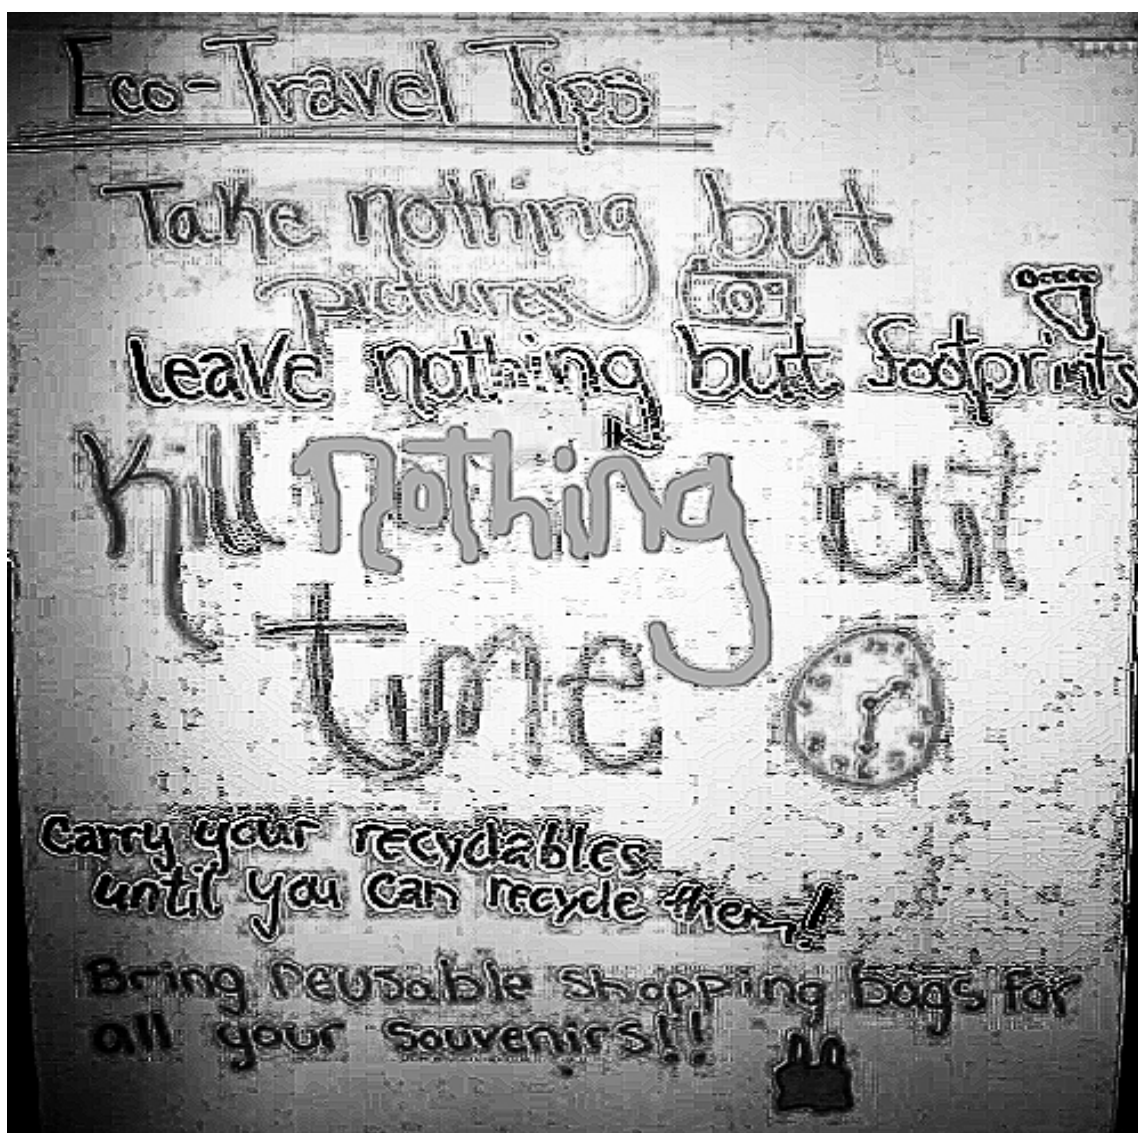 Eco-Travel Tips
Take nothing but
pictures
leave nothing but footprints
Kill nothing but
time
Carry your recyclables
until you can recycle them!
Bring reusable shopping bags for
all your souvenirs!!